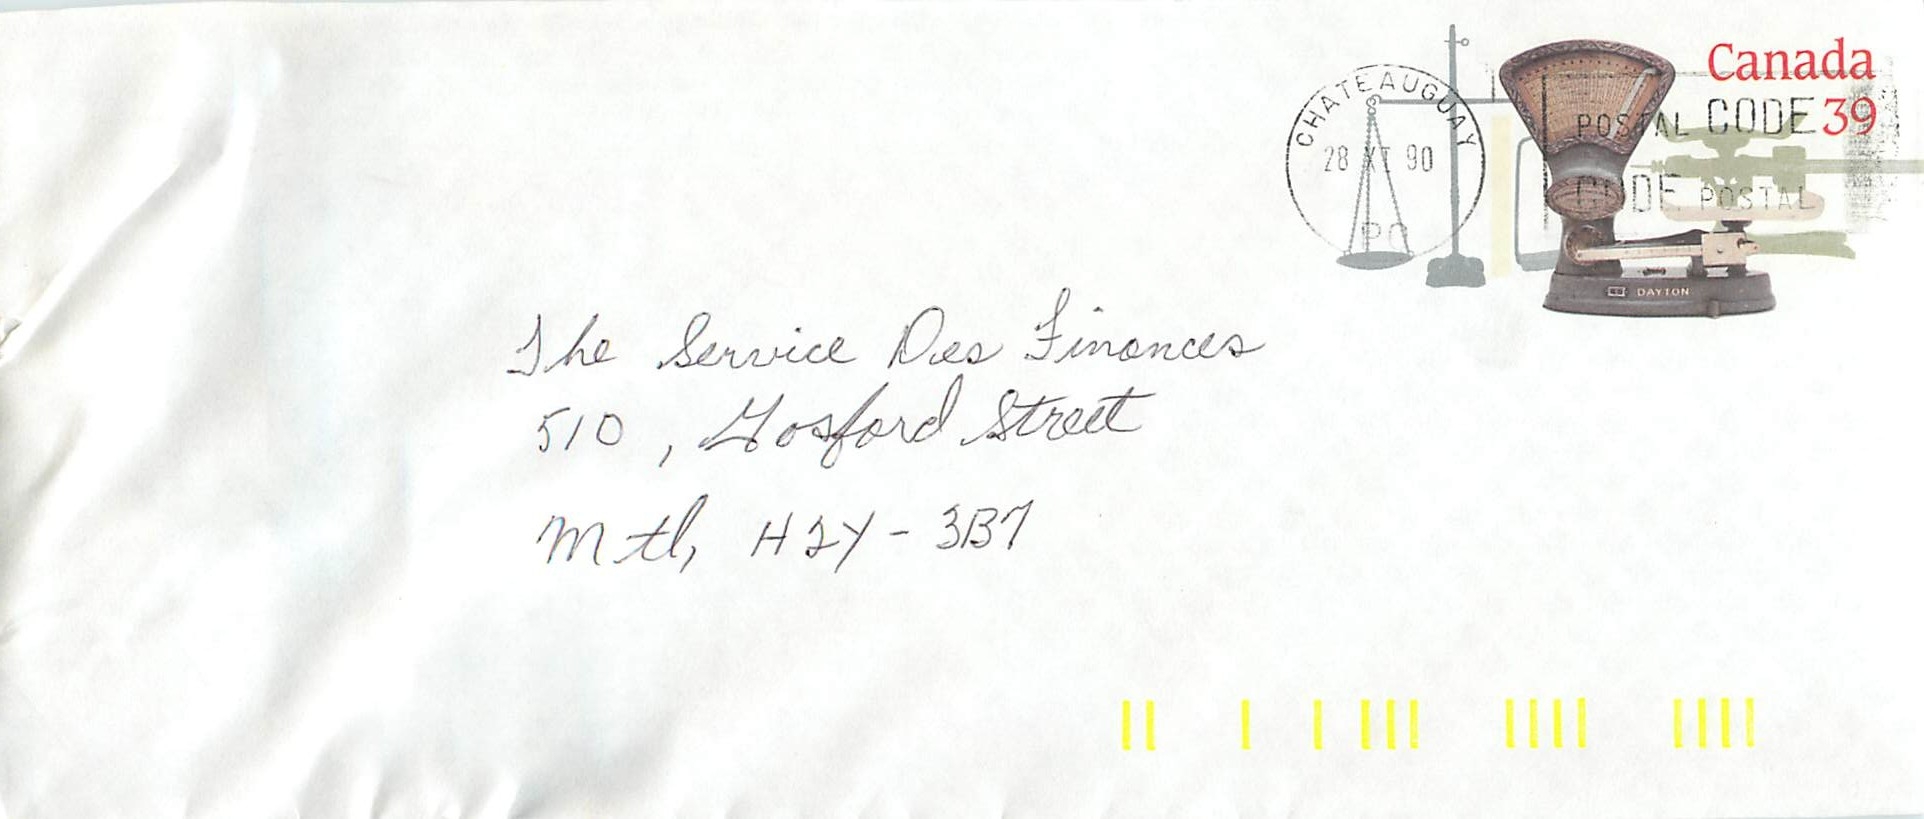 Canada
39
CHATEAUGUAY
28 XI 90
PQ
POSTAL CODE
CODE POSTAL
DAYTON
The Service Des Finances
510, Gosford Street
Mtl, H2Y-3B7